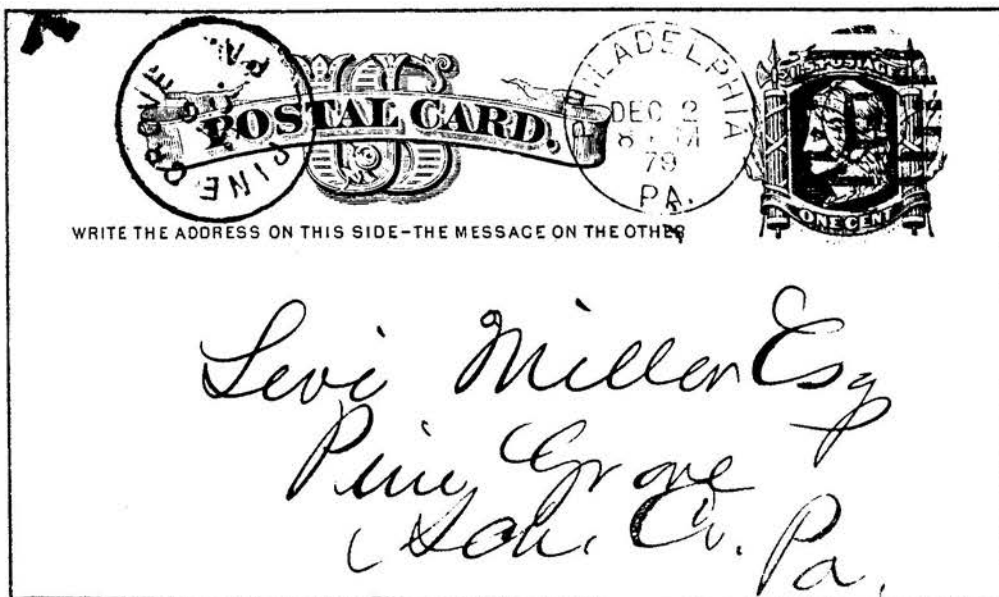 PINE GROVE PA.
POSTAL CARD.
PHILADELPHIA
DEC 2
79
PA.
U.S. POSTAGE
ONE CENT
WRITE THE ADDRESS ON THIS SIDE-THE MESSAGE ON THE OTHER
Levi Miller Esq
Pine Grove
Sch. Co. Pa.